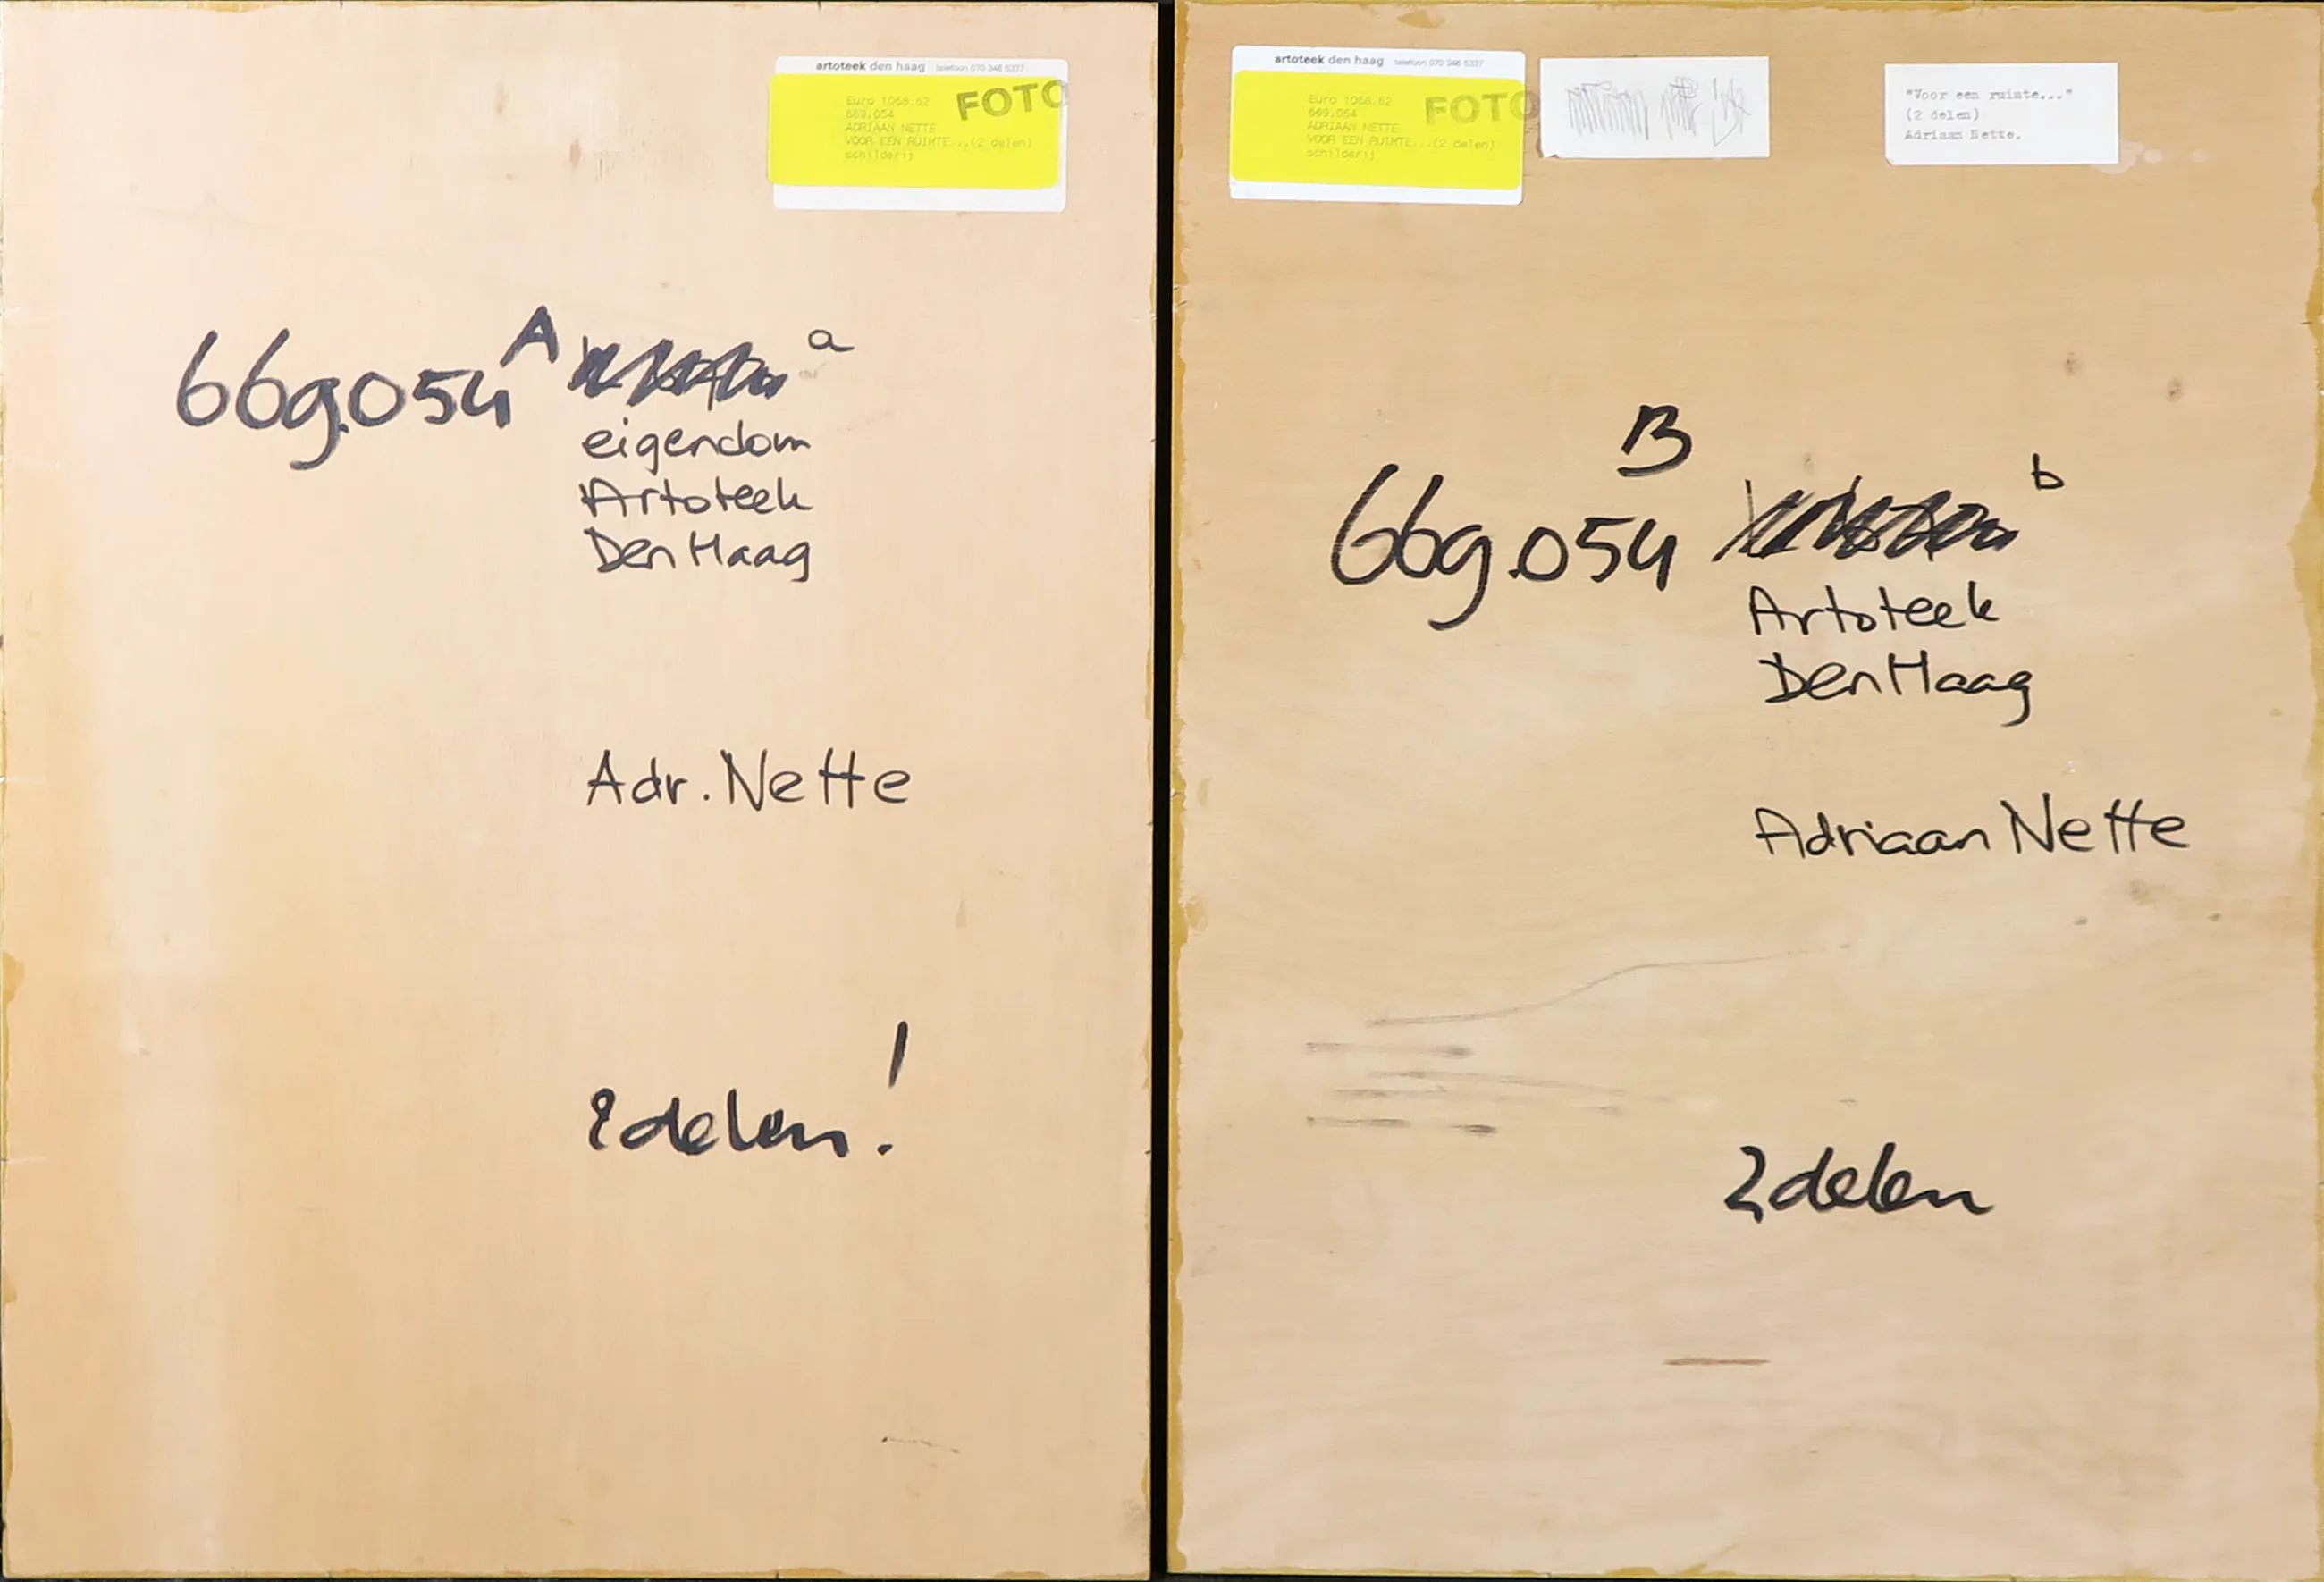 artoteek den haag telefoon 070 346 5337
FOTO
Euro 1058.62
669.054
ADRIAAN NETTE
VOOR EEN RUIMTE...(2 delen)
schilderij
669.054 A a
eigendom
Artoteek
Den Haag
Adr. Nette
2 delen!
artoteek den haag telefoon 070 346 5337
FOTO
Euro 1058.62
669.054
ADRIAAN NETTE
VOOR EEN RUIMTE...(2 delen)
schilderij
"Voor een ruimte..."
(2 delen)
Adriaan Nette.
B
669.054 b
Artoteek
Den Haag
Adriaan Nette
2 delen